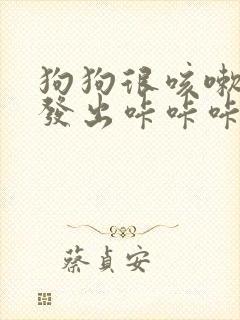 狗狗很咳嗽
發出咔咔咔
蔡貞安